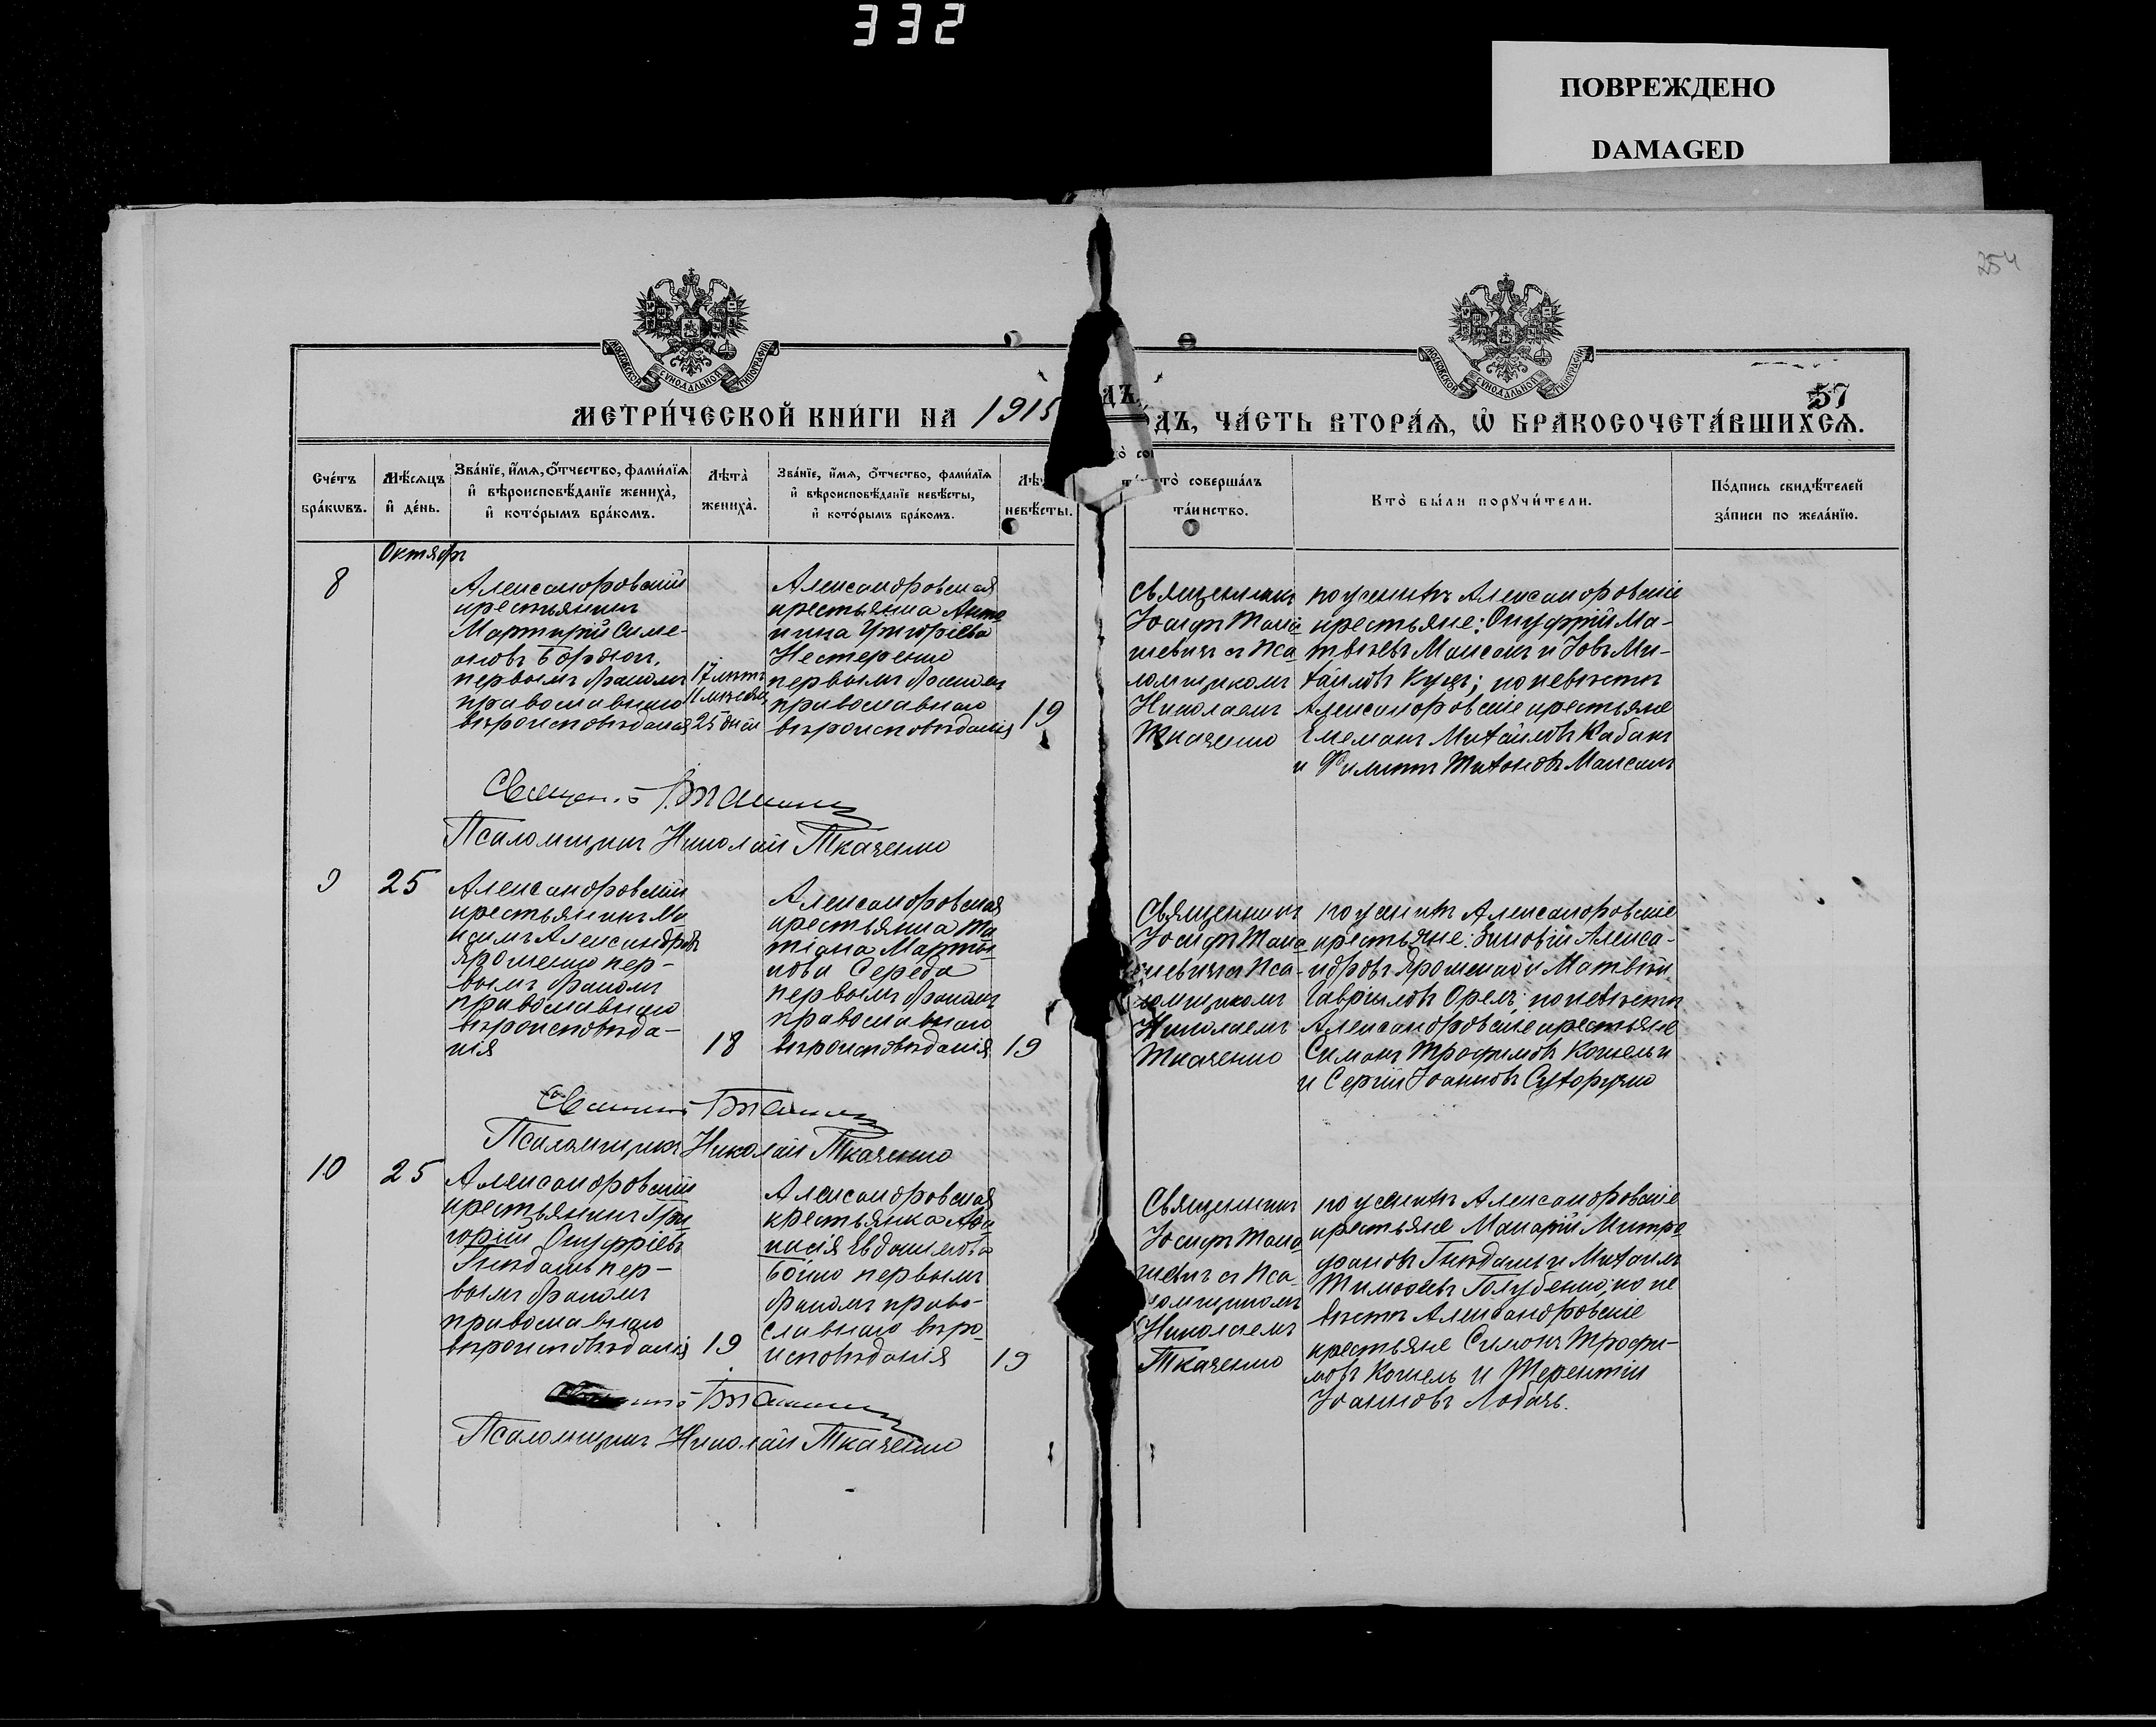 332
ПОВРЕЖДЕНО
DAMAGED
254
57
МЕТРИ́ЧЕСКОЙ КНИ́ГИ НА 1915
ДЪ, ЧА́СТЬ ВТОРА́Ѧ, Ѽ БРАКОСОЧЕТА́ВШИХСѦ.
Сче́тъ бра́кѡвъ.
Мѣ́сѧцъ и҆ де́нь.
Зва́нїе, и҆́мѧ, ѻ҆́тчество, фами́лїѧ и҆ вѣроисповѣ́данїе жениха̀, и҆ кото́рымъ бра́комъ.
Лѣта̀ жениха̀.
Зва́нїе, и҆́мѧ, ѻ҆́тчество, фами́лїѧ и҆ вѣроисповѣ́данїе невѣ́сты, и҆ кото́рымъ бра́комъ.
невѣ́сты.
то̀ соверша́лъ
та́инство.
Кто̀ бы́ли порꙋчи́тели.
По́дпись свидѣ́телей за́писи по жела́нїю.
Октябрь
8
Александровскій
крестьянинъ
Мартирій Симе-
оновъ Бордюг.
первымъ бракомъ
православнаго
вѣроисповѣданія
17 лѣтъ
11 мѣсяца
25 дней
Александровская
крестьянка Анто
нина Григоріева
Нестеренко
первымъ бракомъ
православнаго
вѣроисповѣданія
19
Священникъ
Іосифъ Тана
шевичъ съ Пса
ломщикомъ
Николаемъ
Ткаченко
по женихѣ Александровскіе
крестьяне: Онуфрій Ма-
твѣевъ Максакъ и Іовъ Ми-
хаиловъ Куцъ; по невѣстѣ
Александровскіе крестьяне
Емеланъ Михаиловъ Кабакъ
и Филиппъ Тихоновъ Максакъ
Псаломщикъ Николай Ткаченко
9
25
Александровскій
крестьянинъ Ма
ксимъ Александровъ
Ярошенко пер-
вымъ бракомъ
православнаго
вѣроисповѣда-
нія
18
Александровская
крестьянка Та
тіана Марты-
нова Середа
первымъ бракомъ
православнаго
вѣроисповѣданія
19
Священникъ
Іосифъ Тана
шевичъ съ Пса-
ломщикомъ
Николаемъ
Ткаченко
по женихѣ Александровскіе
крестьяне: Зиновій Алекса-
ндровъ Ярошенко и Матвѣй
Гавріиловъ Орелъ; по невѣстѣ
Александровскіе крестьяне
Симонъ Трофимовъ Кошель и
и Сергій Іоанновъ Сухоручко
Псаломщикъ Николай Ткаченко
10
25
Александровскій
крестьянинъ Гри
горій Онуфріевъ
Гнюдашъ пер-
вымъ бракомъ
православнаго
вѣроисповѣданія
19
Александровская
крестьянка Афа
насія Евдокимова
Бойко первымъ
бракомъ право-
славнаго вѣро
исповѣданія
19
Священникъ
Іосифъ Тана
шевичъ съ Пса-
ломщикомъ
Николаемъ
Ткаченко
по женихѣ Александровскіе
крестьяне Макарій Митро
фановъ Гнюдашъ и Михаилъ
Тимофеевъ Голубенко; по не
вѣстѣ Александровскіе
крестьяне Симонъ Трофи-
мовъ Кошель и Терентій
Іоанновъ Лобачъ.
Псаломщикъ Николай Ткаченко